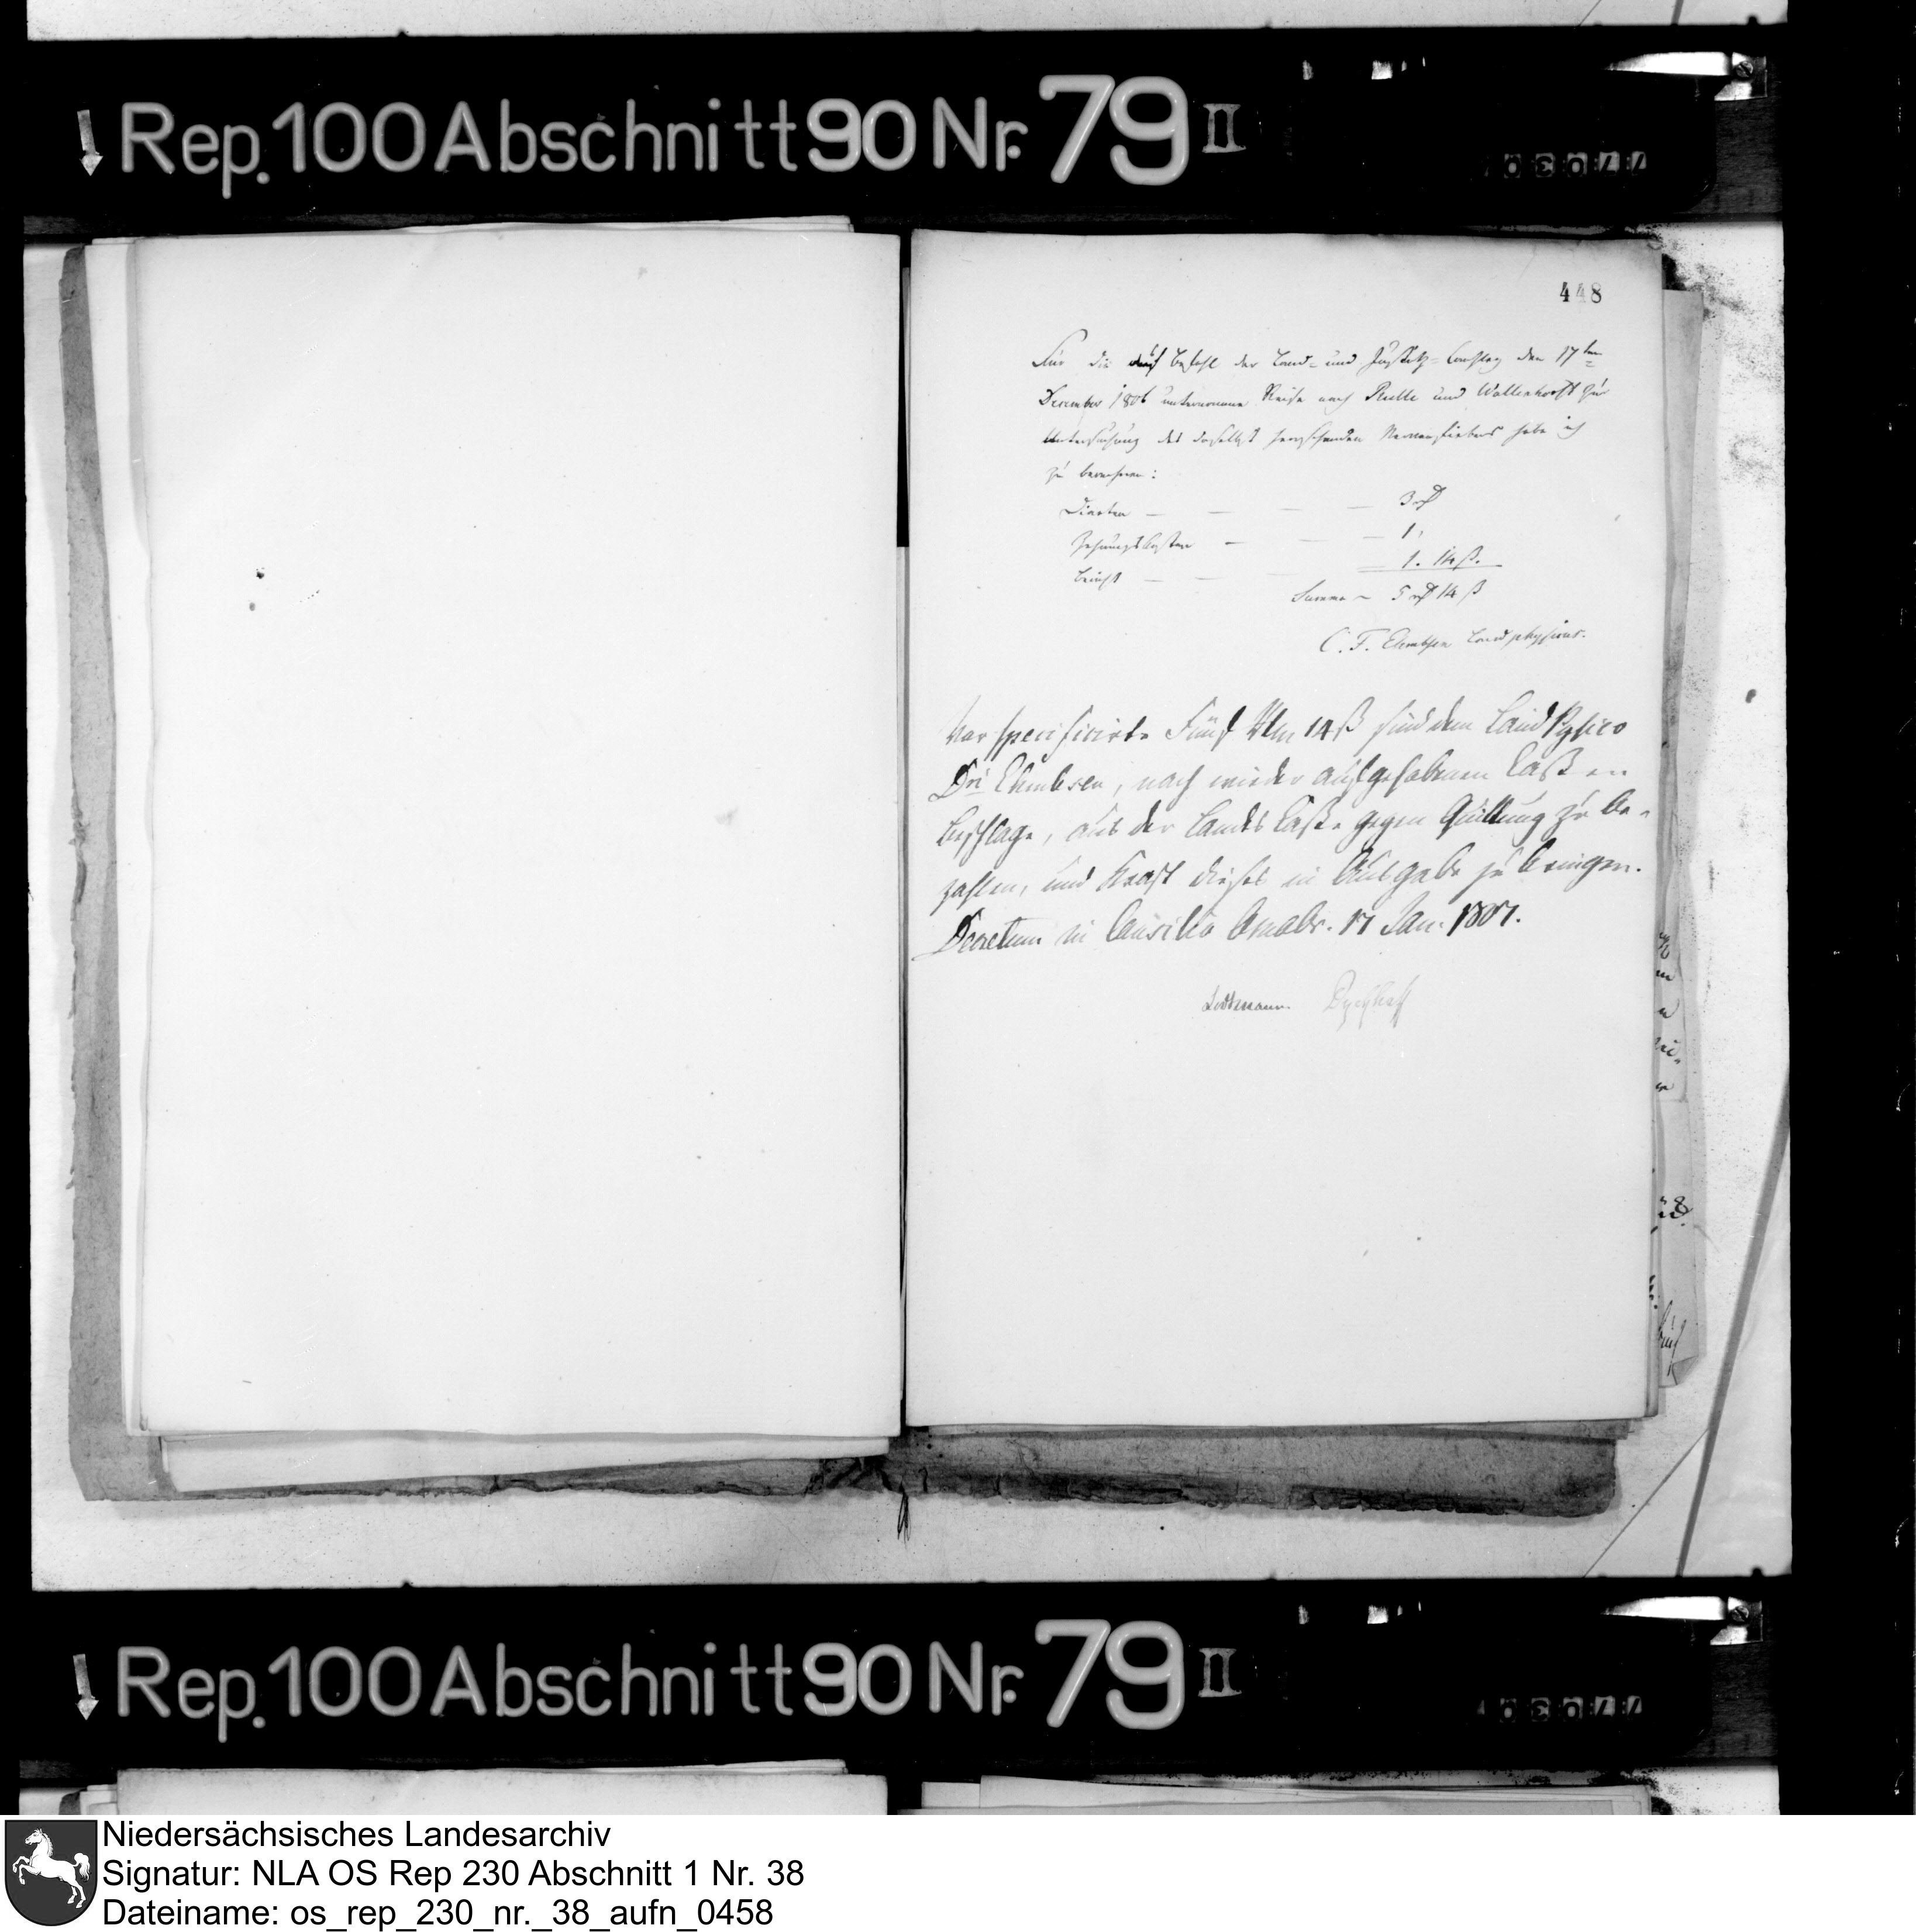 Rep. 100 Abschnitt 90 Nr. 79 II
448
Für die auf Befehl der Land- und Justitz-Canzley den 17ten
December 1806 unternommene Reise nach Rulle und Wallenhorst zur
Untersuchung des daselbst herrschenden Nervenfiebers habe ich
zu berechnen:
Diaeten — — — — 3 rt
Zehrungskosten — — — 1,
Bericht — — — 1. 14 ß.
Summa — 5 rt 14 ß
C. F. Ehmbsen Landphysicus.
Vor specificirte Fünf Rtlr 14 ß sind dem Land Pysico
Dri Ehmbsen, nach wieder aufgehobenem Caßen
beschlage, aus der Landes Caße gegen Quittung zu be-
zahlen, und Kraft dieses in Ausgabe zu bringen.
Decretum in Consilio Osnabr. 17 Jan. 1807.
Lodtmann. Dyckhoff
Rep. 100 Abschnitt 90 Nr. 79 II
Niedersächsisches Landesarchiv
Signatur: NLA OS Rep 230 Abschnitt 1 Nr. 38
Dateiname: os_rep_230_nr._38_aufn_0458